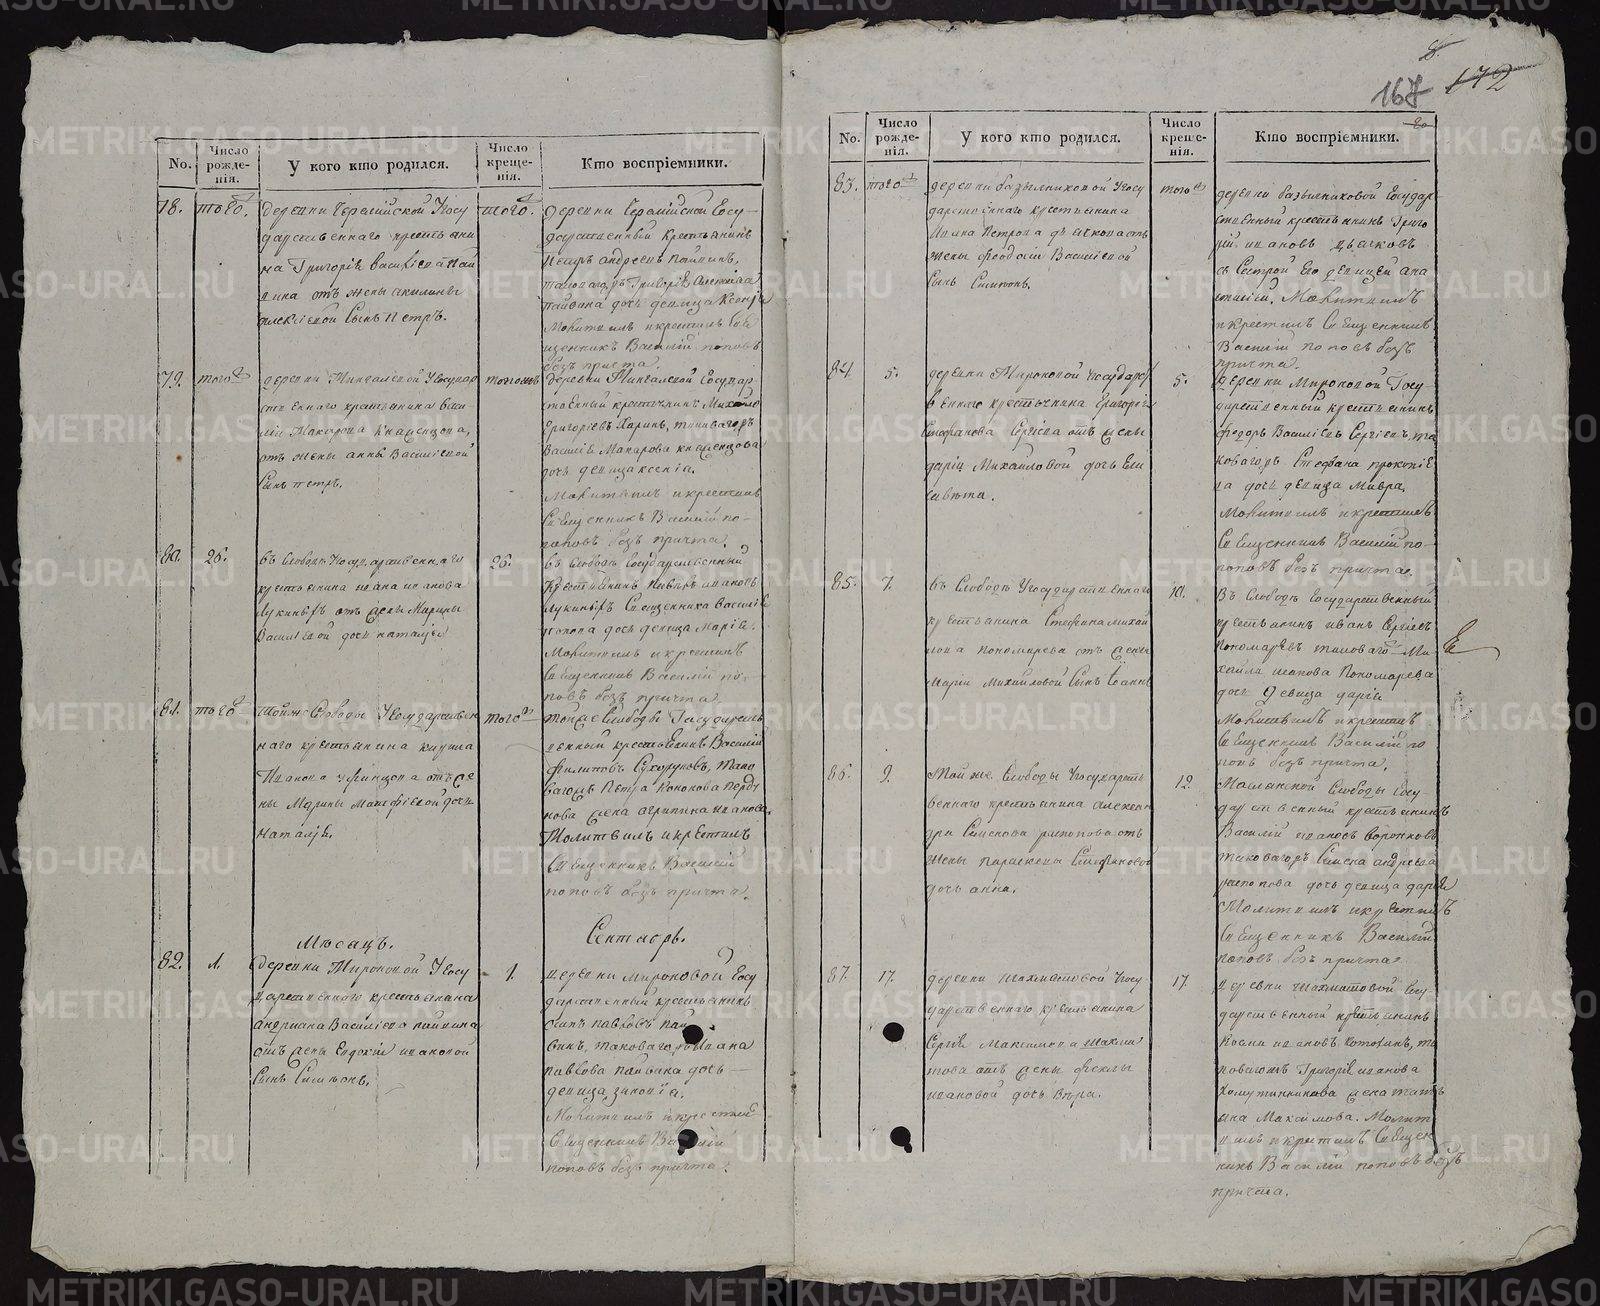 8.
167 172
20
No.
Число рожде-нія.
У кого кто родился.
Число креще-нія.
Кто воспріемники.
78.
того
деревни Черемійской Угосу
дарственнаго крестьяни
на Григорія Василіева Пай
вина отъ жены Акилины
Алексіевой Сынъ Петръ.
того
деревни Черемійской Госу-
дарственный Крестьянинъ
Петръ Андреевъ Пайвинъ,
таковагожъ Григорія
Пайвина дочь девица Ксенія
Молитвилъ икрестилъ Свя
щенникъ Василій поповъ
безъ причта.
79.
того
деревни Мингалевой Угосудар
ственнаго крестьянина Васи
лія Макарова
отъ жены Анны Василіевой
Сынъ петръ.
тогожъ
деревни Мингалевой Государ-
ственный крестьянинъ Михайло
Григоріевъ Харинъ, таковагожъ
Василія Макарова
дочь девица ксенія.
Молитвилъ икрестилъ
Священникъ Василій по-
повъ безъ причта.
80.
26.
Въ Слободе Угосударственнаго
крестьянина Ивана Иванова
Лукиныхъ отъ жены Марины
Василіевой дочь наталія
26.
въ Слободе Государственный
Крестьянинъ Ивановъ
Лукиныхъ Священника Василія
попова дочь девица Марія.
Молитвилъ икрестилъ
Священникъ Василій по-
повъ безъ причта.
81.
того
Тойже Слободы Угосударствен
наго крестьянина
Иванова отъ же
ны Марины Матфіевой дочь
Наталія.
того
тойже Слободы Государств
венный крестьянинъ Василій
Филиповъ Сухоруковъ, тако
вагожъ Петра
жена агрипина иванова
Молитвилъ икрестилъ
Священникъ Василій
поповъ безъ причта.
Мѣсяцъ. Сентябрь.
82.
1.
деревни Мироновой Угосу
дарственнаго крестьянина
андриана Василіева пайвина
отъ жены Евдокіи ивановой
Сынъ Симіонъ.
1.
деревни мироновой Госу
дарственный крестьянинъ
павловъ пай
винъ, таковагожъ Ивана
павлова пайвина дочь
девица зиновія.
Молитвилъ икрестилъ
Священникъ Василій
поповъ безъ причта.
No.
Число рожде-нія.
У кого кто родился.
Число креще-нія.
Кто воспріемники.
83.
того
деревни базыльниковой Угосу
дарственнаго крестьянина
Ивана Петрова дьячкова отъ
жены феодосіи Василіевой
Сынъ Симионъ.
того
деревни базыльниковой Государ
ственный крестьянинъ Григо
рій ивановъ дьячковъ
съ Сестрой Его девицей Ана
стасіей. Молитвилъ
икрестилъ Священникъ
Василій поповъ безъ
причта.
84.
5.
деревни Мироновой Угосударст
веннаго крестьянина Григорія
Стефанова Сергіева отъ жены
даріи Михайловой дочь Ели
савета.
5.
деревни Мироновой Госу-
дарственный крестьянинъ
Федоръ Василіевъ Сергіевъ, та
ковагожъ Стефана прокопіе
ва дочь девица Мавра,
Молитвилъ икрестилъ
Священникъ Василій по-
повъ безъ причта.
85.
7.
Въ Слободе Угосударственнаго
крестьянина Стефана михай
лова пономарева отъ жены
Маріи Михайловой Сынъ Іоаннъ
10.
Въ Слободе Государственный
крестьянинъ иванъ Сергіевъ
Пономаревъ таковагожъ Ми
хайла иванова Пономарева
дочь девица дарія
Молитвилъ икрестилъ
Священникъ Василій по
повъ безъ причта.
86.
9.
Той же Слободы Угосударств
веннаго крестьянина алексан
дра Симионова распопова отъ
жены параскевы Стефановой
дочь анна.
12.
Слободы Госу-
дарственный крестьянинъ
Василій ивановъ воронковъ
таковагожъ Симеона андреева
распопова дочь девица дарія
Молитвилъ икрестилъ
Священникъ Василій
поповъ безъ причта.
87.
17.
деревни шахматовой Угосу
дарственнаго крестьянина
Сергія Максимова шахма
това отъ жены феклы
ивановой дочь Вера.
17.
деревни шахматовой Госу-
дарственный крестьянинъ
Косма ивановъ та
ковагожъ Григорія иванова
Хомутинникова жена татъ
яна Максимова. Молит
вилъ икрестилъ Священ
никъ Василій поповъ безъ
причта.